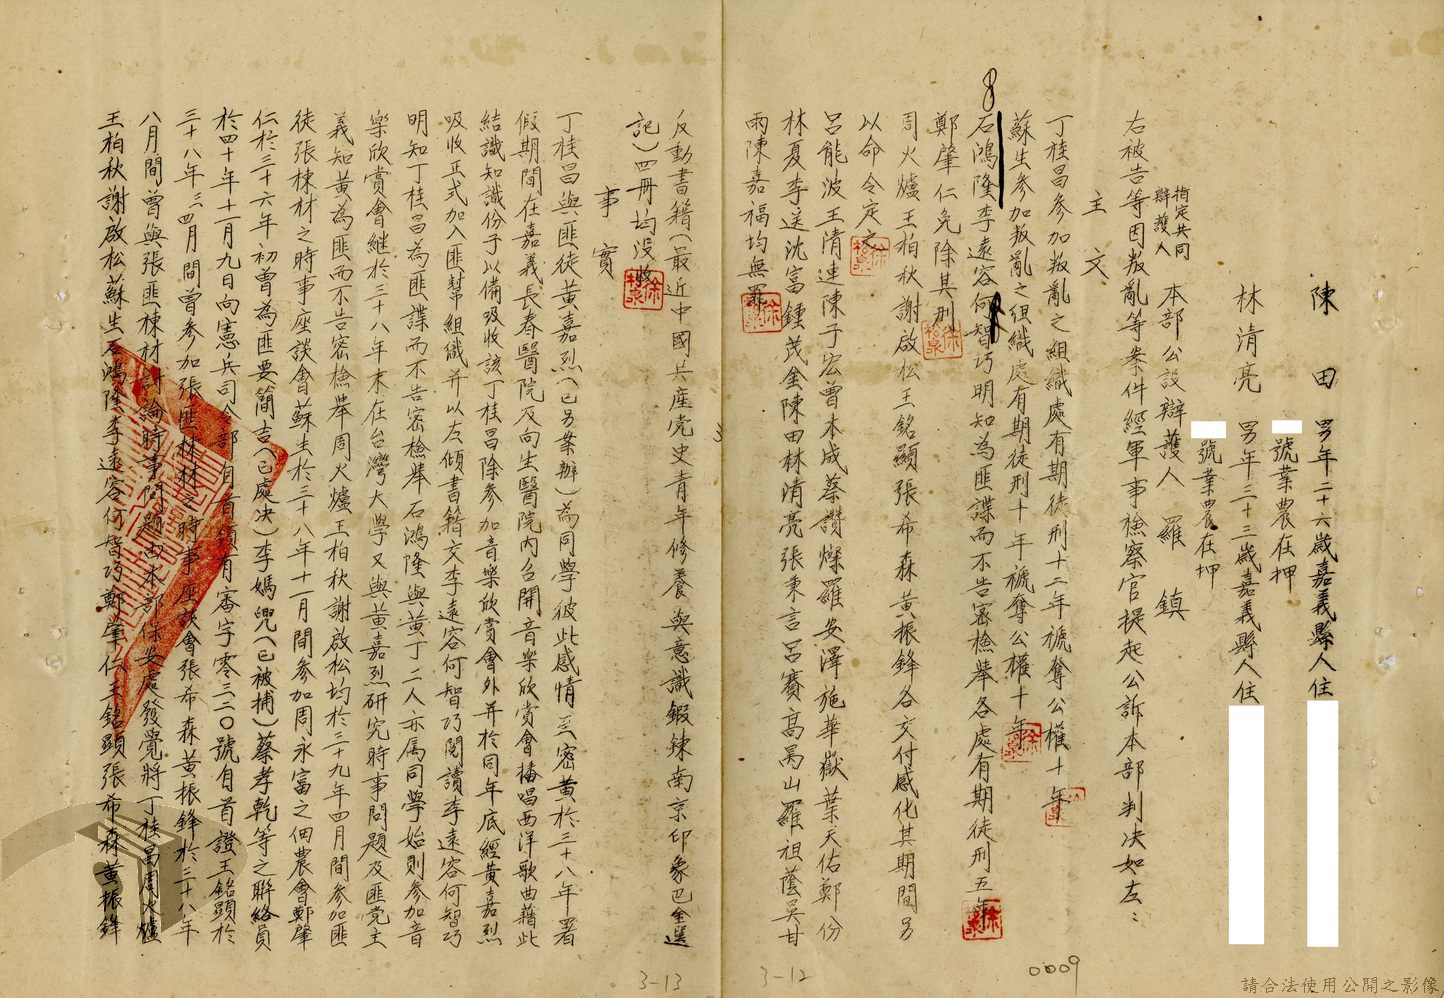 陳 田 男年二十六歲嘉義縣人住
號業農在押
林清亮 男年三十三歲嘉義縣人住
號業農在押
指定共同辯護人 本部公設辯護人 羅 鎮
右被告等因叛亂等案件經軍事檢察官提起公訴本部判決如左：
主 文
丁桂昌參加叛亂之組織處有期徒刑十二年褫奪公權十年
蘇生參加叛亂之組織處有期徒刑十年褫奪公權十年
石鴻隆李遠容何智巧明知為匪諜而不告密檢舉各處有期徒刑五年
鄭肇仁免除其刑
周火爐王柏秋謝啟松王銘顯張希森黃振鋒各交付感化其期間另
以命令定之
呂能波王清連陳子宏曾本成蔡讚燦羅安澤施華嶽葉天佑鄭份
林夏李送沈富鍾茂金陳田林清亮張秉言呂賽高昺山羅祖蔭吳甘
雨陳嘉福均無罪
反動書籍（最近中國共產党史青年修養與意識鍛鍊南京印象巴金選
記）四冊均沒收
事 實
丁桂昌與匪徒黃嘉烈（已另案辦）為同學彼此感情至密黃於三十八年署
假期間在嘉義長春醫院及向生醫院內台開音樂欣賞會播唱西洋歌曲藉此
結識知識份子以備吸收該丁桂昌除參加音樂欣賞會外并於同年底經黃嘉烈
吸收正式加入匪幫組織并以左傾書籍交李遠容何智巧閱讀李遠容何智巧
明知丁桂昌為匪諜而不告密檢舉石鴻隆與黃丁二人亦屬同學始則參加音
樂欣賞會継於三十八年末在台灣大學又與黃嘉烈研究時事問題及匪党主
義知黃為匪而不告密檢舉周火爐王柏秋謝啟松均於三十九年四月間參加匪
徒張棟材之時事座談會蘇生於三十八年十一月間參加周永富之佃農會鄭肇
仁於三十六年初曾為匪要簡吉（已處決）李媽兜（已被捕）蔡孝乾等之聯絡員
於四十年十一月九日向憲兵司令部自首領有審字零三二〇號自首證王銘顯於
三十八年三四月間曾參加張匪林林之時事座談會張希森黃振鋒於三十八年
八月間曾與張匪棟材討論時事問題由本部保安處發覺將丁桂昌周火爐
王柏秋謝啟松蘇生石鴻隆李遠容何智巧鄭肇仁王銘顯張希森黃振鋒
0009
3-12
3-13
請合法使用公開之影像